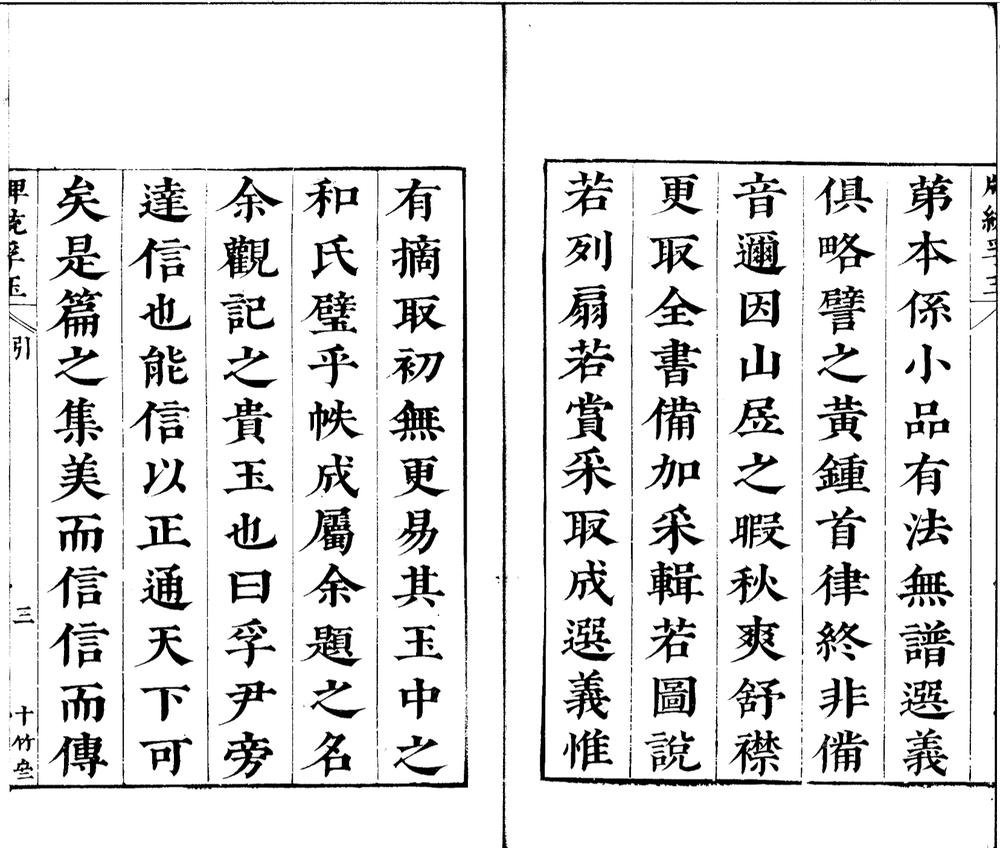 第本係小品有法無譜選義
俱略譬之黃鍾首律終非備
音邇因山居之暇秋爽舒襟
更取全書備加采輯若圖說
若列扇若賞采取成選義惟
有摘取初無更易其玉中之
和氏璧乎帙成屬余題之名
余觀記之貴玉也曰孚尹旁
達信也能信以正通天下可
矣是篇之集美而信信而傳
引
三
十竹叁